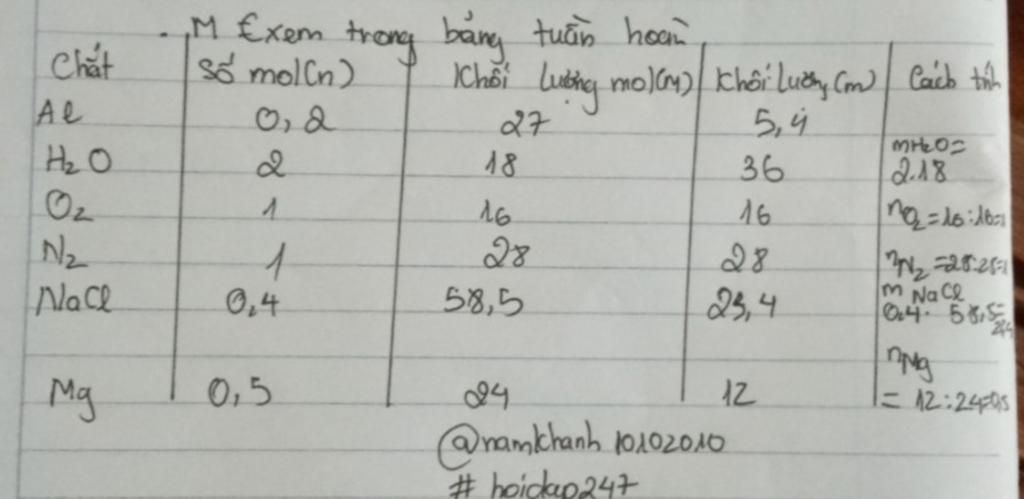 M Exem trong bảng tuần hoàn
Chất Số mol(n) Khối lượng mol(M) Khối lượng (m) Cách tính
Al 0,2 27 5,4
H2O 2 18 36 mH2O= 2.18
O2 1 16 16 nO2=16:16=1
N2 1 28 28 nN2=28:28=1
NaCl 0,4 58,5 23,4 m NaCl
0,4. 58,5=
nMg
Mg 0,5 24 12 = 12:24=0,5
@namkhanh10102010
# hoidap247